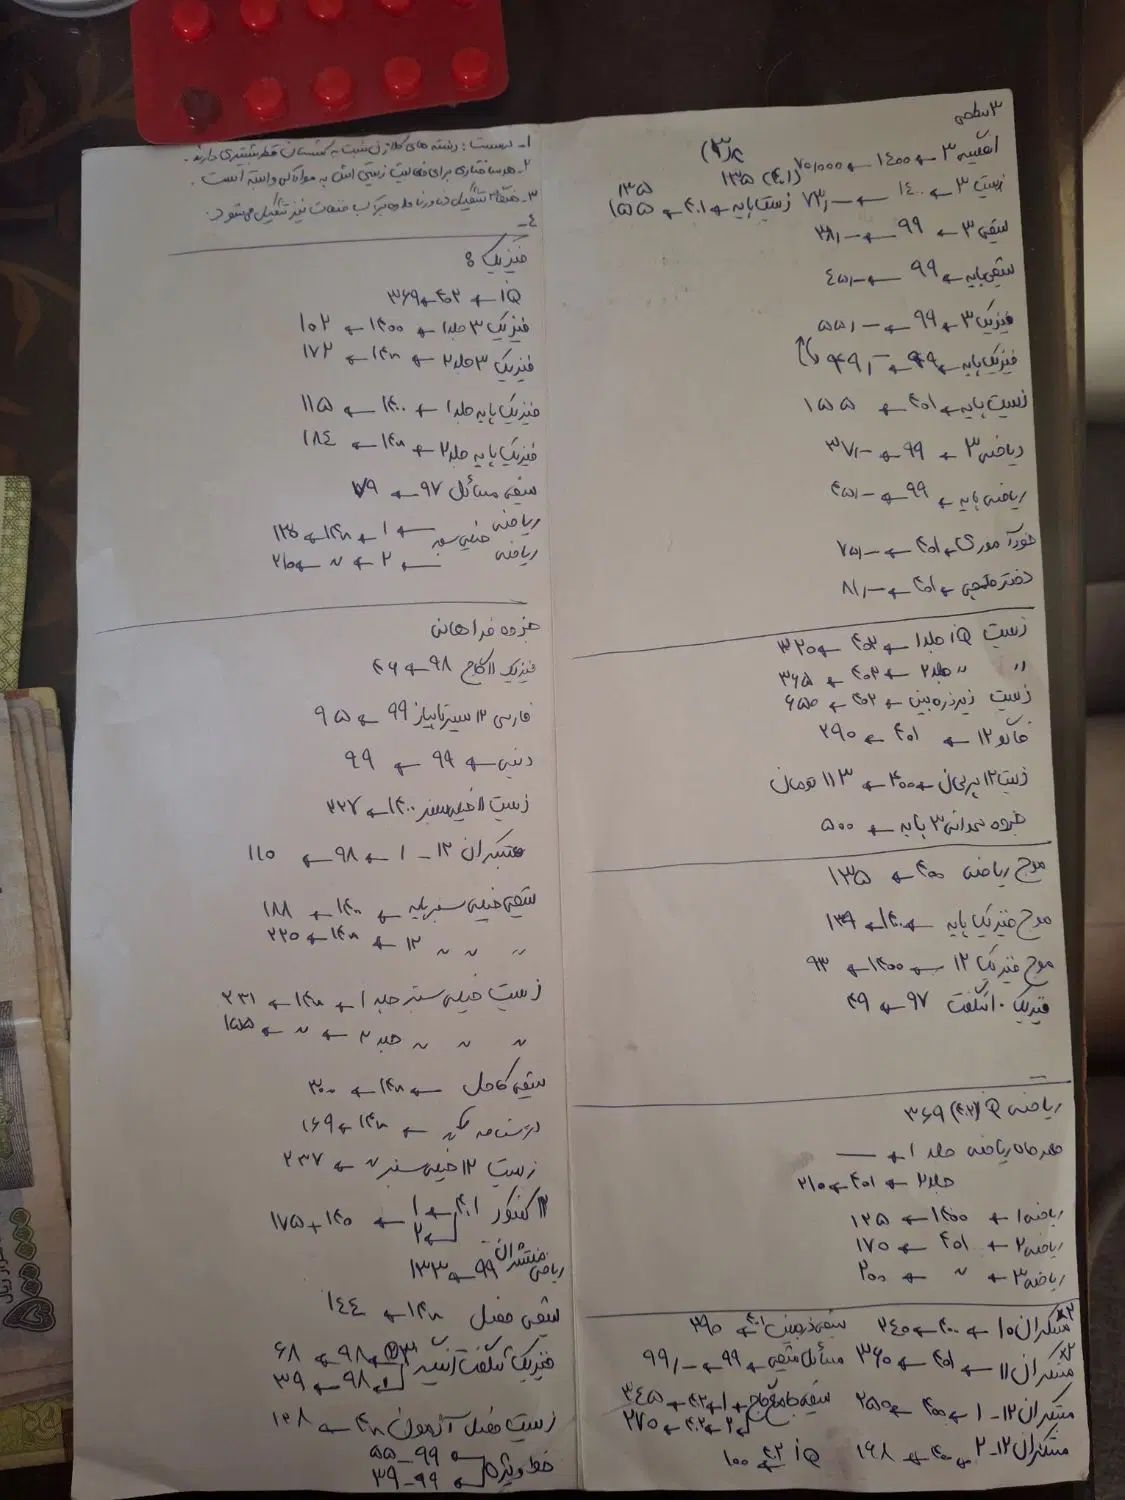 ۳ سطحی
آئینه ۳ ← ۱۴۰۰ ← ۷۰,۰۰۰
زیست ۳ ← ۱۴۰۰ ← ۷۳,-
زیست پایه ← ۴۰۱ ← ۱۵۵
۱۳۵
۱۳۵ (۴۰۱)
شیمی ۳ ← ۹۹ ← ۳۸,-
شیمی پایه ← ۹۹ ← ۴۵,-
فیزیک ۳ ← ۹۹ ← ۵۵,-
فیزیک پایه ← ۹۹ ← ۴۹,-
زیست پایه ← ۴۰۱ ← ۱۵۵
ریاضی ۳ ← ۹۹ ← ۳۷,-
ریاضی پایه ← ۹۹ ← ۴۵,-
خودآموزی ← ۴۰۱ ← ۷۵,-
دفتر ← ۴۰۱ ← ۸۱,-
زیست IQ جلد۱ ← ۴۰۲ ← ۳۲۰
〃 〃 جلد۲ ← ۴۰۲ ← ۳۶۵
زیست زیر ذره بین ← ۴۰۲ ← ۶۵۰
فاگو ۱۲ ← ۴۰۱ ← ۲۹۰
زیست ۱۲ ← ۴۰۰ ← ۱۱۳ تومان
جزوه ۳ پایه ← ۵۰۰
موج ریاضی ۴۰۰ ← ۱۳۵
موج فیزیک پایه ← ۱۴۰۰ ← ۱۳۹
موج فیزیک ۱۲ ← ۱۴۰۰ ← ۹۳
فیزیک ۱۰ شگفت ۹۷ ← ۴۹
ریاضی IQ (۴۰۲) ۳۶۹
مهر و ماه ریاضی جلد ۱ ← —
جلد۲ ← ۴۰۱ ← ۲۱۰
ریاضی ۱ ← ۱۴۰۰ ← ۱۲۵
ریاضی ۲ ← ۴۰۱ ← ۱۷۰
ریاضی ۳ ← 〃 ← ۲۰۰
مبتکران ۱۰ ← ۴۰۰ ← ۲۴۰
×۲
شیمی ذره بین ۴۰۱ ← ۳۹۰
مبتکران ۱۱ ← ۴۰۱ ← ۳۶۰
×۲
مسائل شیمی ← ۹۹ ← ۹۹,-
مبتکران ۱۲ - ۱ ← ۴۰۰ ← ۲۵۰
شیمی جامع گاج ← ۱ ← ۴۰۲ ← ۳۴۵
۲ ← ۴۰۲ ← ۲۷۰
مبتکران ۱۲ - ۲ ← ۴۰۰ ← ۱۶۸
IQ ۴۰۲ ← ۱۰۰
۱- درست: دسته های کلاژن نسبت به کشسان قطر بیشتری دارند.
۲- هر ساختاری برای فعالیت زیستی اش به مواد آلی وابسته است.
۳- هنگام تشکیل نیز تشکیل می شود.
۴-
فیزیک :
IQ ← ۴۰۲ ← ۳۶۹
فیزیک ۳ جلد۱ ← ۱۴۰۰ ← ۱۰۲
فیزیک ۳ جلد۲ ← ۱۴۰۰ ← ۱۷۲
فیزیک پایه جلد۱ ← ۱۴۰۰ ← ۱۱۵
فیزیک پایه جلد۲ ← ۱۴۰۰ ← ۱۸۴
شیمی مسائل ۹۷ ← ۷۹
ریاضی خیلی سبز ← ۱ ← ۱۴۰۰ ← ۱۲۵
ریاضی ← ۲ ← 〃 ← ۲۱۰
جزوه فراهانی
فیزیک ۱۱ گاج ۹۸ ← ۴۶
فارسی ۱۲ سیر تا پیاز ۹۹ ← ۹۵
دینی ← ۹۹ ← ۹۹
زیست ۱۱ خیلی سبز ۱۴۰۰ ← ۲۲۷
مبتکران ۱۲ - ۱ ← ۹۸ ← ۱۱۰
شیمی خیلی سبز پایه ← ۱۴۰۰ ← ۱۸۸
〃 〃 〃 ۱۲ ← ۱۴۰۰ ← ۲۲۰
زیست خیلی سبز جلد ۱ ← ۱۴۰۰ ← ۲۳۱
〃 〃 〃 جلد ۲ ← 〃 ← ۱۵۵
شیمی کامل ← ۱۴۰۰ ← ۳۰۰
درسنامه ← ۱۴۰۰ ← ۱۶۹
زیست ۱۲ خیلی سبز 〃 ← ۲۳۷
کنکور ۴۰۱ ← ۱ ← ۱۴۰ + ۱۷۵
۲
ریاضی منتشران ۹۹ ← ۱۳۳
شیمی فصل ۱۴۰۰ ← ۱۴۴
فیزیک شگفت انگیز ← ۹۸ ← ۶۸
← ۹۸ ← ۳۹
زیست فصل آزمون ۴۰۰ ← ۱۲۸
خط ویژه ← ۹۹ - ۵۵
← ۹۹ - ۳۹